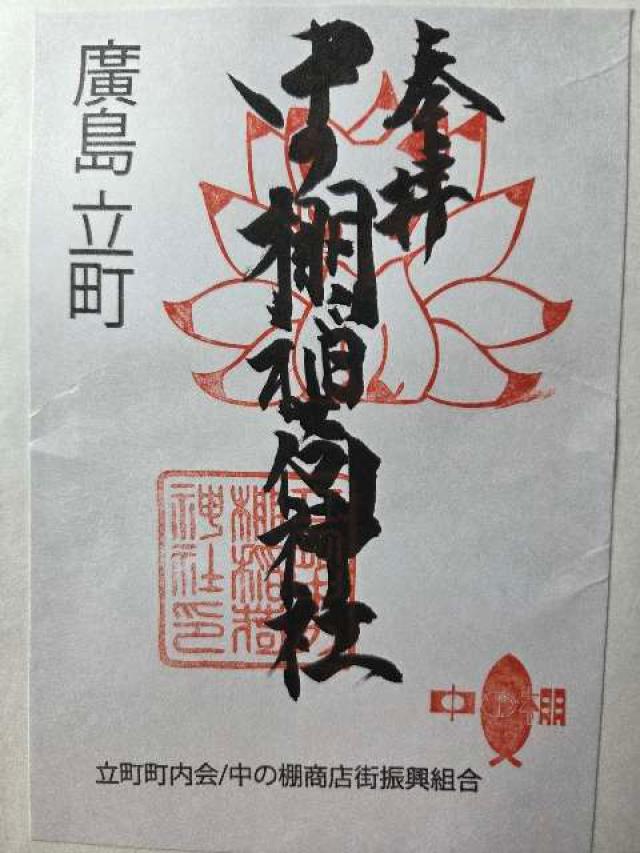 奉拝
中の棚稲荷神社
廣島 立町
棚稲荷
神社印
中の棚
立町町内会/中の棚商店街振興組合